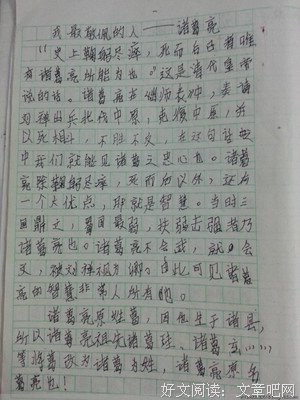 我最敬佩的人——诸葛亮
“史上鞠躬尽瘁，死而自己者唯
有诸葛亮所能为也。”这是清代皇帝
说的话。诸葛亮在《师表》中，表请
刘禅出兵北伐中原，克复中原，并
以死相
不胜不久，在这句话
中我们就能见诸葛之忠心也。诸葛
亮除鞠躬尽瘁，死而后以外，还有
一个大优点，那就是智慧。当时三
国鼎立，蜀国最弱，扶弱击强者乃
诸葛亮也。诸葛亮不会武，就会
文，被刘禅视为
由此可见诸葛
亮的智慧非常人所有的。
诸葛亮原姓葛，因他生于诸县，
所以诸葛亮祖先诸葛珪、诸葛玄……
等将葛改为诸葛为姓，诸葛亮原名
葛亮也！
好文阅读：文章吧网